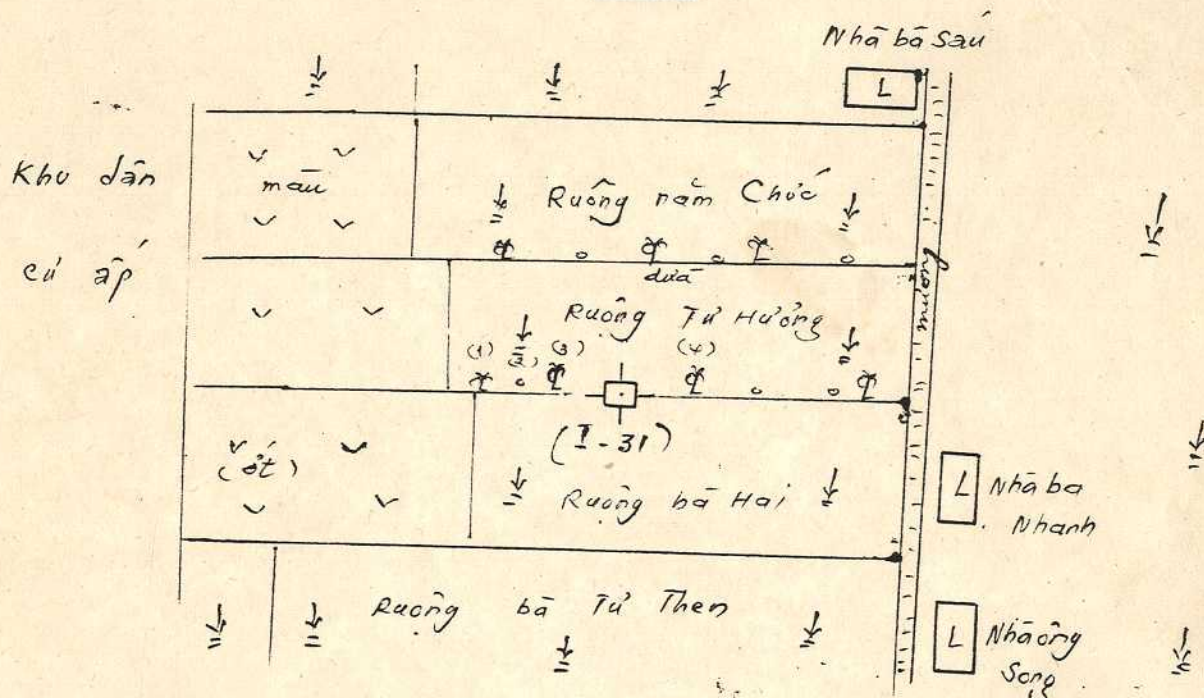 Nhà bà Sáu
L
Khu dân
cư ấp
màu
Ruộng năm Chức
dừa
mương
Ruộng Tư Hưởng
(1)
(2)
(3)
(4)
(I-31)
(ớt)
Ruộng bà Hai
L Nhà ba
Nhanh
Ruộng bà Tư Then
L Nhà ông
Song